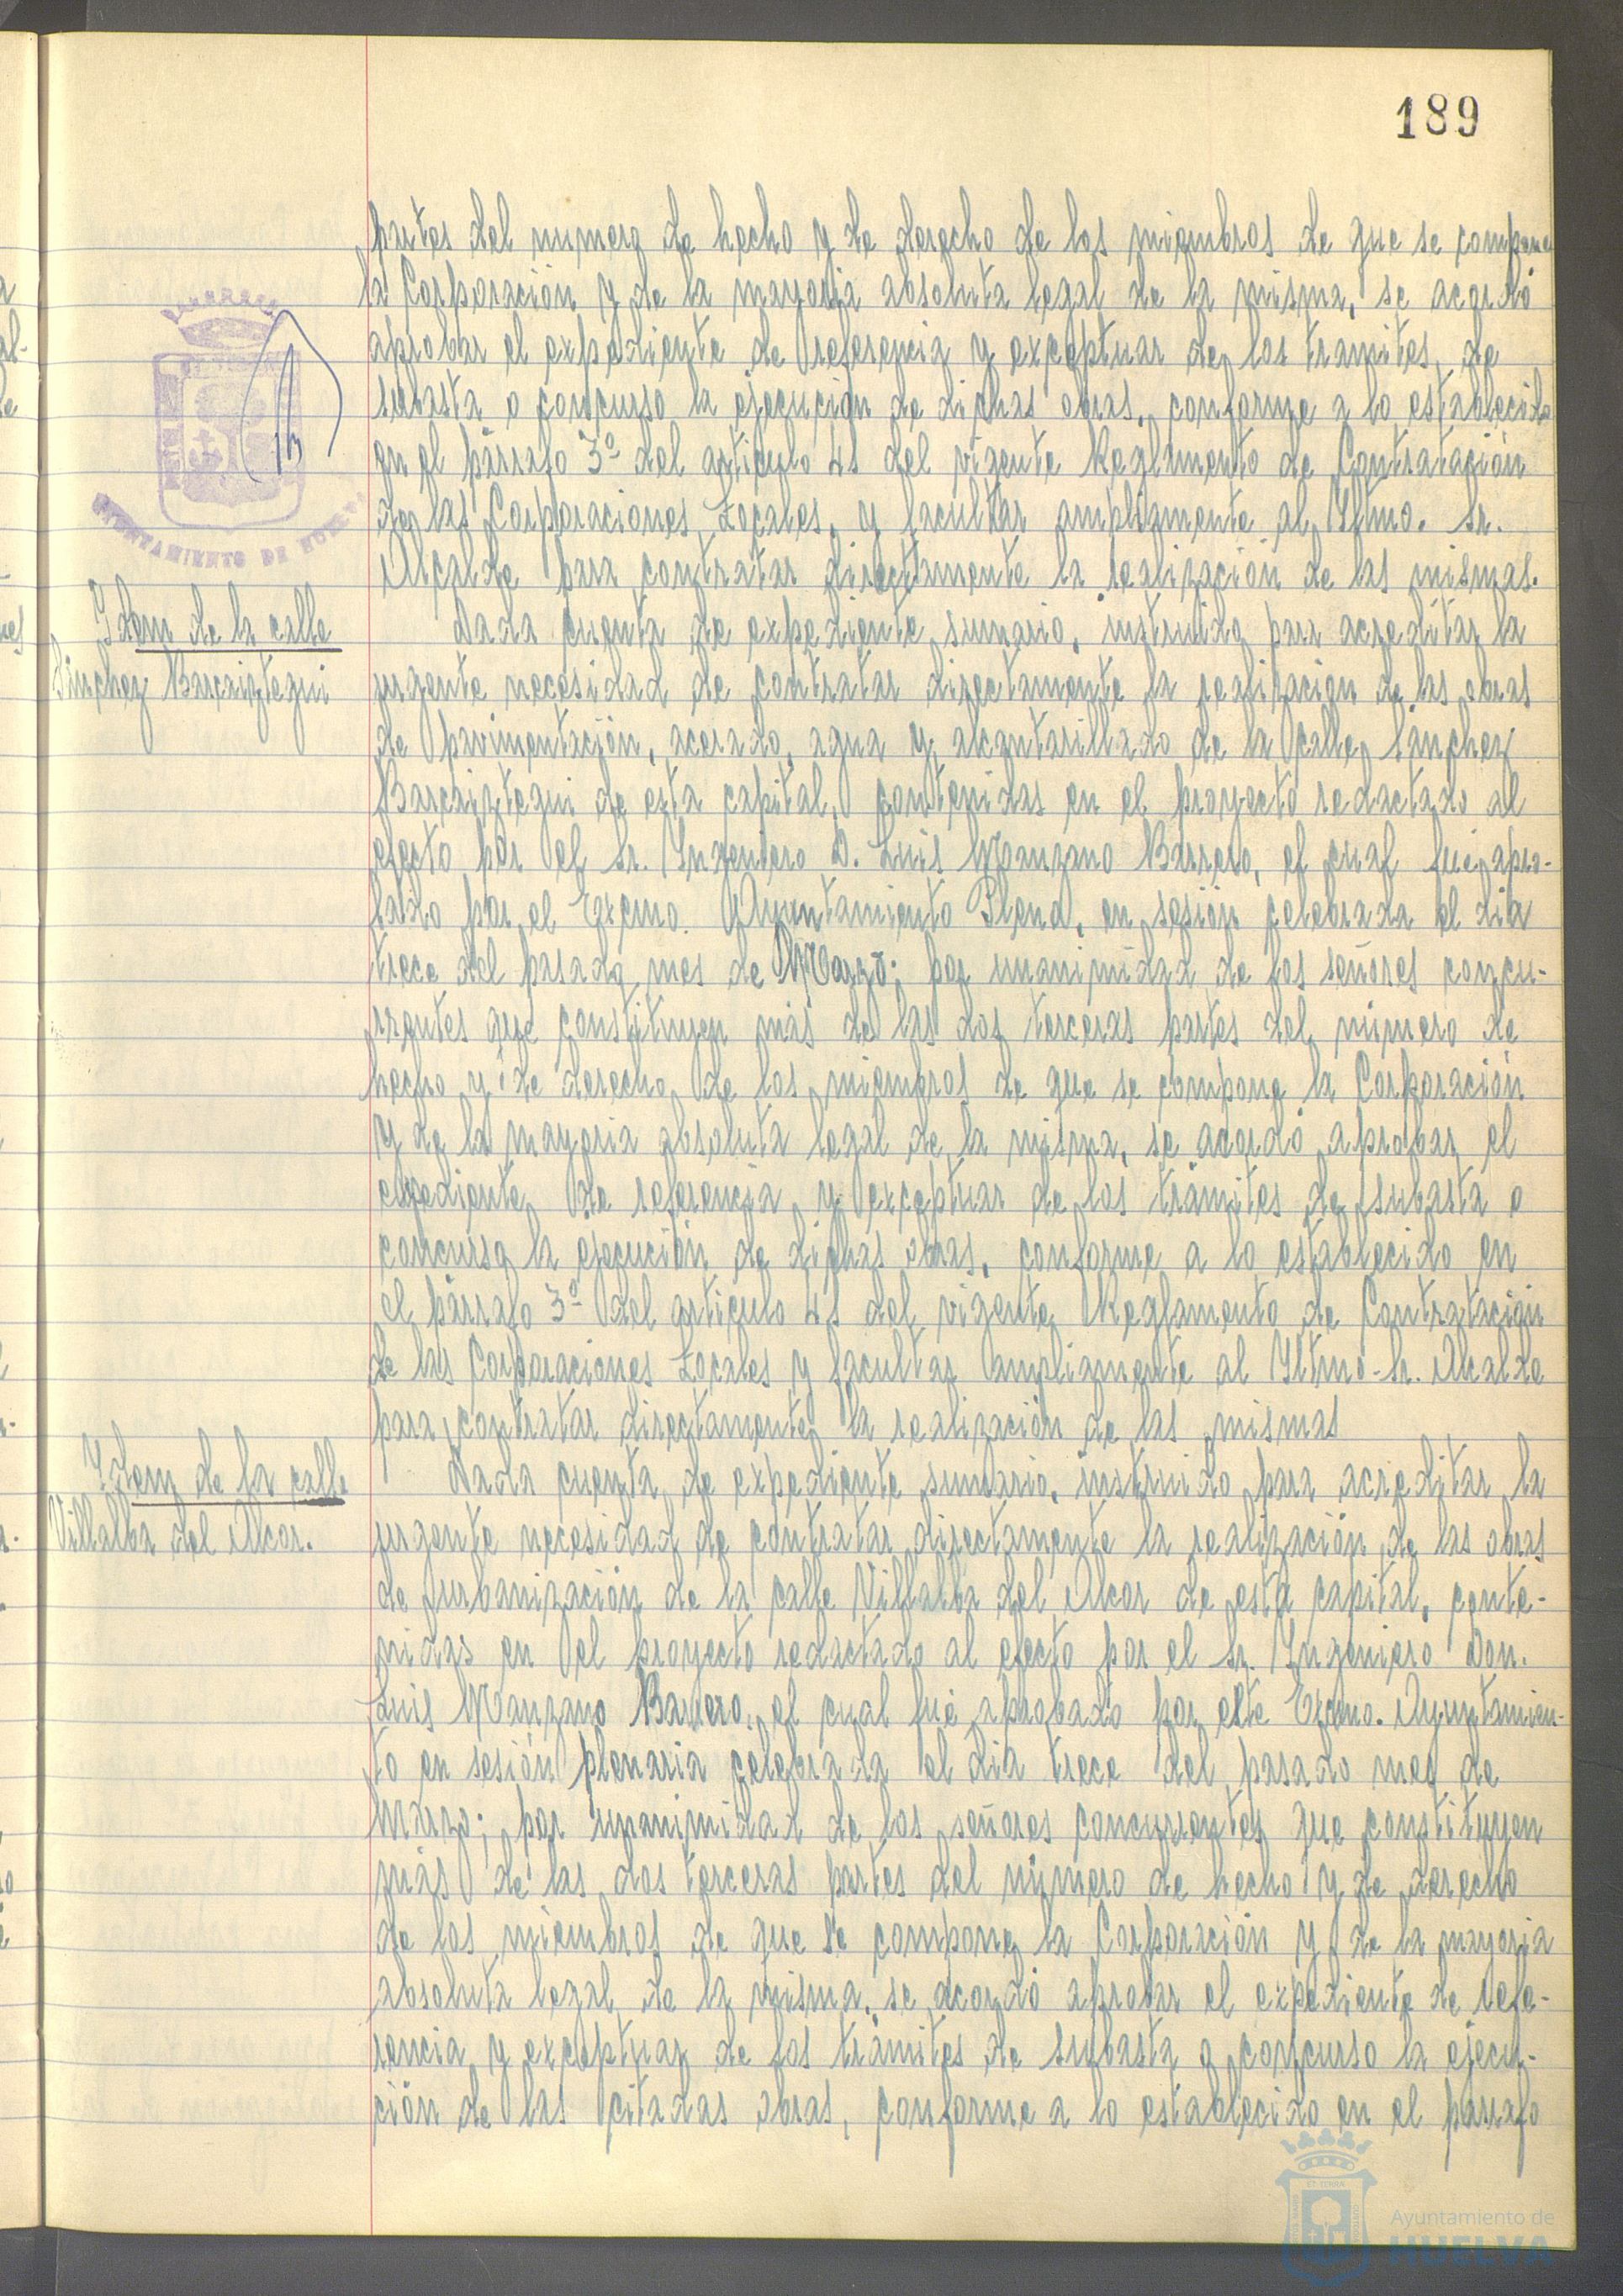 189
partes del numero de hecho y de derecho de los miembros de que se compone
la Corporación y de la mayoria absoluta legal de la misma, se acordó
aprobar el expediente de referencia y exceptuar de los tramites de
subasta o concurso la ejecución de dichas obras, conforme a lo establecido
en el párrafo 3º del articulo 41 del vigente Reglamento de Contratación
de las Corporaciones Locales, y facultar ampliamente al Iltmo. Sr.
Alcalde para contratar directamente la realización de las mismas.
AYUNTAMIENTO DE HUELVA
Idem de la calle
Sánchez Barcaiztegui
Dada cuenta de expediente sumario, instruido para acreditar la
urgente necesidad de contratar directamente la realización de las obras
de pavimentación, acerado, agua y alcantarillado de la calle Sánchez
Barcaiztegui de esta capital, contenidas en el proyecto redactado al
efecto por el Sr. Ingeniero D. Luis Manzano Barrero, el cual fué apro-
bado por el Excmo. Ayuntamiento Pleno, en sesión celebrada el dia
trece del pasado mes de Marzo; por unanimidad de los señores concu-
rrentes que constituyen más de las dos terceras partes del número de
hecho y de derecho de los miembros de que se compone la Corporación
y de la mayoria absoluta legal de la misma, se acordó aprobar el
expediente de referencia y exceptuar de los trámites de subasta o
concurso la ejecución de dichas obras, conforme a lo establecido en
el párrafo 3º del articulo 41 del vigente Reglamento de Contratación
de las Corporaciones Locales y facultar ampliamente al Iltmo-Sr. Alcalde
para contratar directamente la realización de las mismas
Idem de la calle
Villalba del Alcor.
Dada cuenta de expediente sumario, instruido para acreditar la
urgente necesidad de contratar directamente la realización de las obras
de urbanización de la calle Villalba del Alcor de esta capital, conte-
nidas en el proyecto redactado al efecto por el Sr. Ingeniero Don.
Luis Manzano Barrero, el cual fué aprobado por este Excmo. Ayuntamien-
to en sesión plenaria celebrada el dia trece del pasado mes de
Marzo; por unanimidad de los señores concurrentes que constituyen
más de las dos terceras partes del número de hecho y de derecho
de los miembros de que se compone la Corporación y de la mayoria
absoluta legal de la misma, se acordó aprobar el expediente de refe-
rencia y exceptuar de los trámites de subasta o concurso la ejecu-
ción de las citadas obras, conforme a lo establecido en el párrafo
Ayuntamiento de
HUELVA